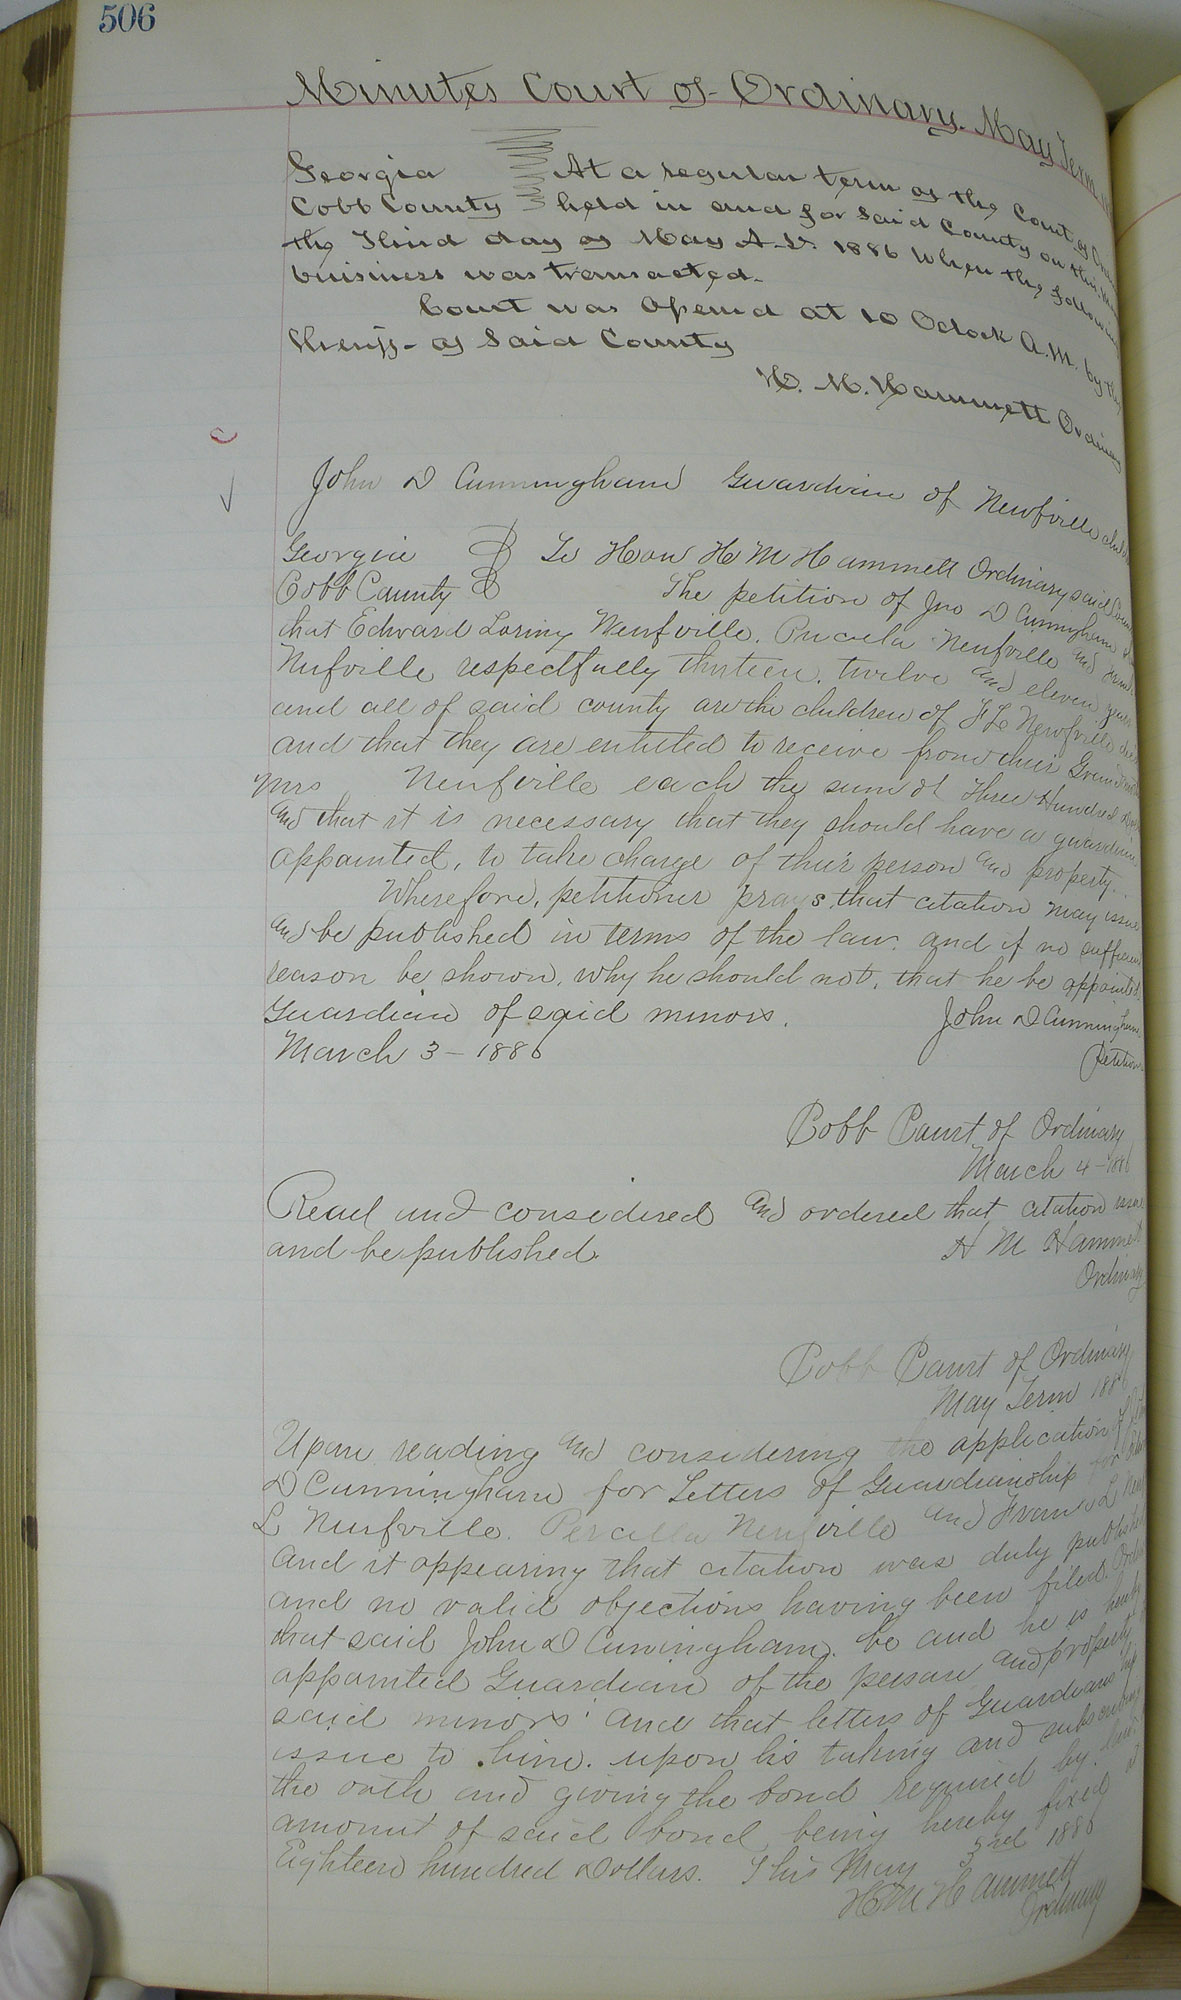 506
Minutes Court of Ordinary. May Term
Georgia At a regular term of the Court of
Cobb County held in and for Said County on this
the Third day of May A.D. 1886 When the following
buisiness was transacted.
Court was Opened at 10 Oclock A.M. by the
Sheriff of Said County
H. M. Hammett Ordinary
John D Cunningham Guardian of Neufville
Georgia To Hon H M Hammett Ordinary said
Cobb County The petition of Jno D Cunningham
that Edward Loring Neufville. Pricila Neufville and
Nufville respectfully thirteen. twelve and eleven years
and all of said county are the children of F L Neufville
and that they are entitled to receive from their
Mrs Neufville each the sum of Three Hundred
and that it is necessary that they should have a guardian
appointed, to take charge of their person and property.
Wherefore, petitioner prays that citation may issue
and be published in terms of the law. and if no sufficient
reason be shown, why he should not, that he be appointed
Guardian of said minors. John D Cunningham
March 3 - 1886 Petitioner
Cobb Court of Ordinary
March 4 - 1886
Read and considered and ordered that citation issue
and be published. H M Hammett
Ordinary
Cobb Court of Ordinary
May Term 1886
Upon reading and considering the application of
D Cunningham for Letters of Guardianship for
L Neufville. Percilla Neufville and
and it appearing that citation was duly published
and no valid objections having been filed.
that said John D Cuningham. be and he is hereby
appointed Guardian of the person and property
said minors and that letters of Guardianship
issue to him. upon his taking and subscribing
the oath and giving the bond required by law
amount of said bond being hereby fixed at
Eighteen hundred Dollars. This May 3rd 1886
H M Hammett
Ordinary